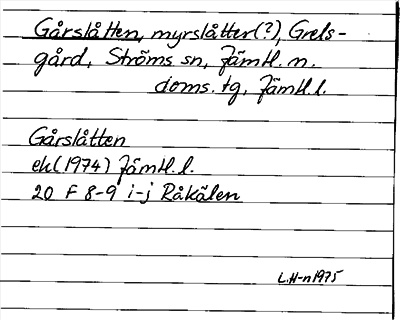 Gårslåtten, myrslåtter(?), Grels-
gård, Ströms sn, Jämtl. n.
doms. tg, Jämtl. l.
Gårslåtten
ek(1974) Jämtl. l.
20 F 8-9 i-j Råkälen
L.H-n 1975